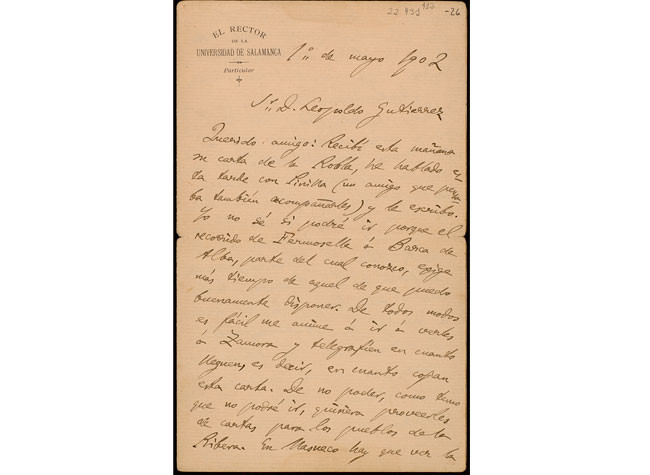 22.433
-26
EL RECTOR
DE LA
UNIVERSIDAD DE SALAMANCA
Particular
1º de mayo 1902
Sr. D. Leopoldo Gutierrez
Querido amigo: Recibí esta mañana
su carta de la Robla, he hablado es
ta tarde con Pinilla (un amigo que pensa
ba también acompañarles) y le escribo.
Yo no sé si podré ir porque el
recorrido de Fermoselle á Barca de
Alba, parte del cual conozco, exige
más tiempo de aquel de que puedo
buenamente disponer. De todos modos
es fácil me anime á ir á verles
á Zamora y telegrafíen en cuanto
lleguen, es decir, en cuanto cojan
esta carta. De no poder, como temo
que no podré ir, quisiera proveerles
de cartas para los pueblos de la
Ribera. En Masueco hay que ver la